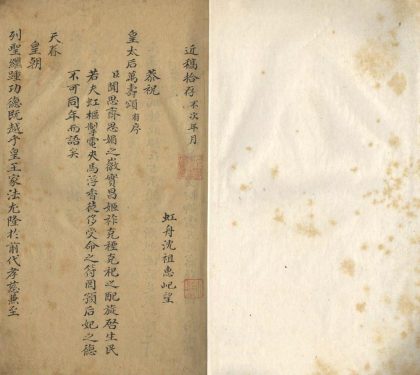 近稿拾存 不次年月
虹舟沈祖惠屺望
恭祝
皇太后萬壽頌 有序
臣聞思齊思媚之徽實昌姬祚克禋克祀之配旋啓生民
若夫虹樞掣電天馬浮香被侈受命之符罔預后妃之德
不可同年而語矣
天眷
皇朝
列聖繼踵功德既越乎皇王家法尤隆於前代孝慈兼至